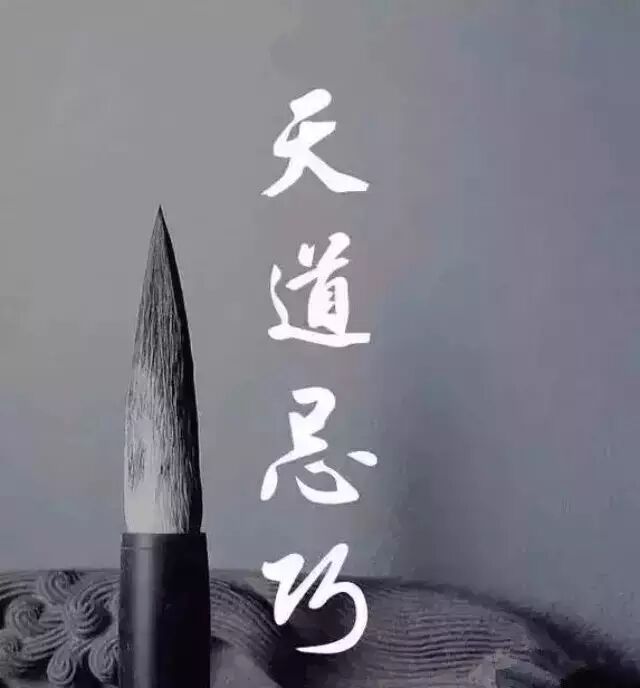 天道忌巧